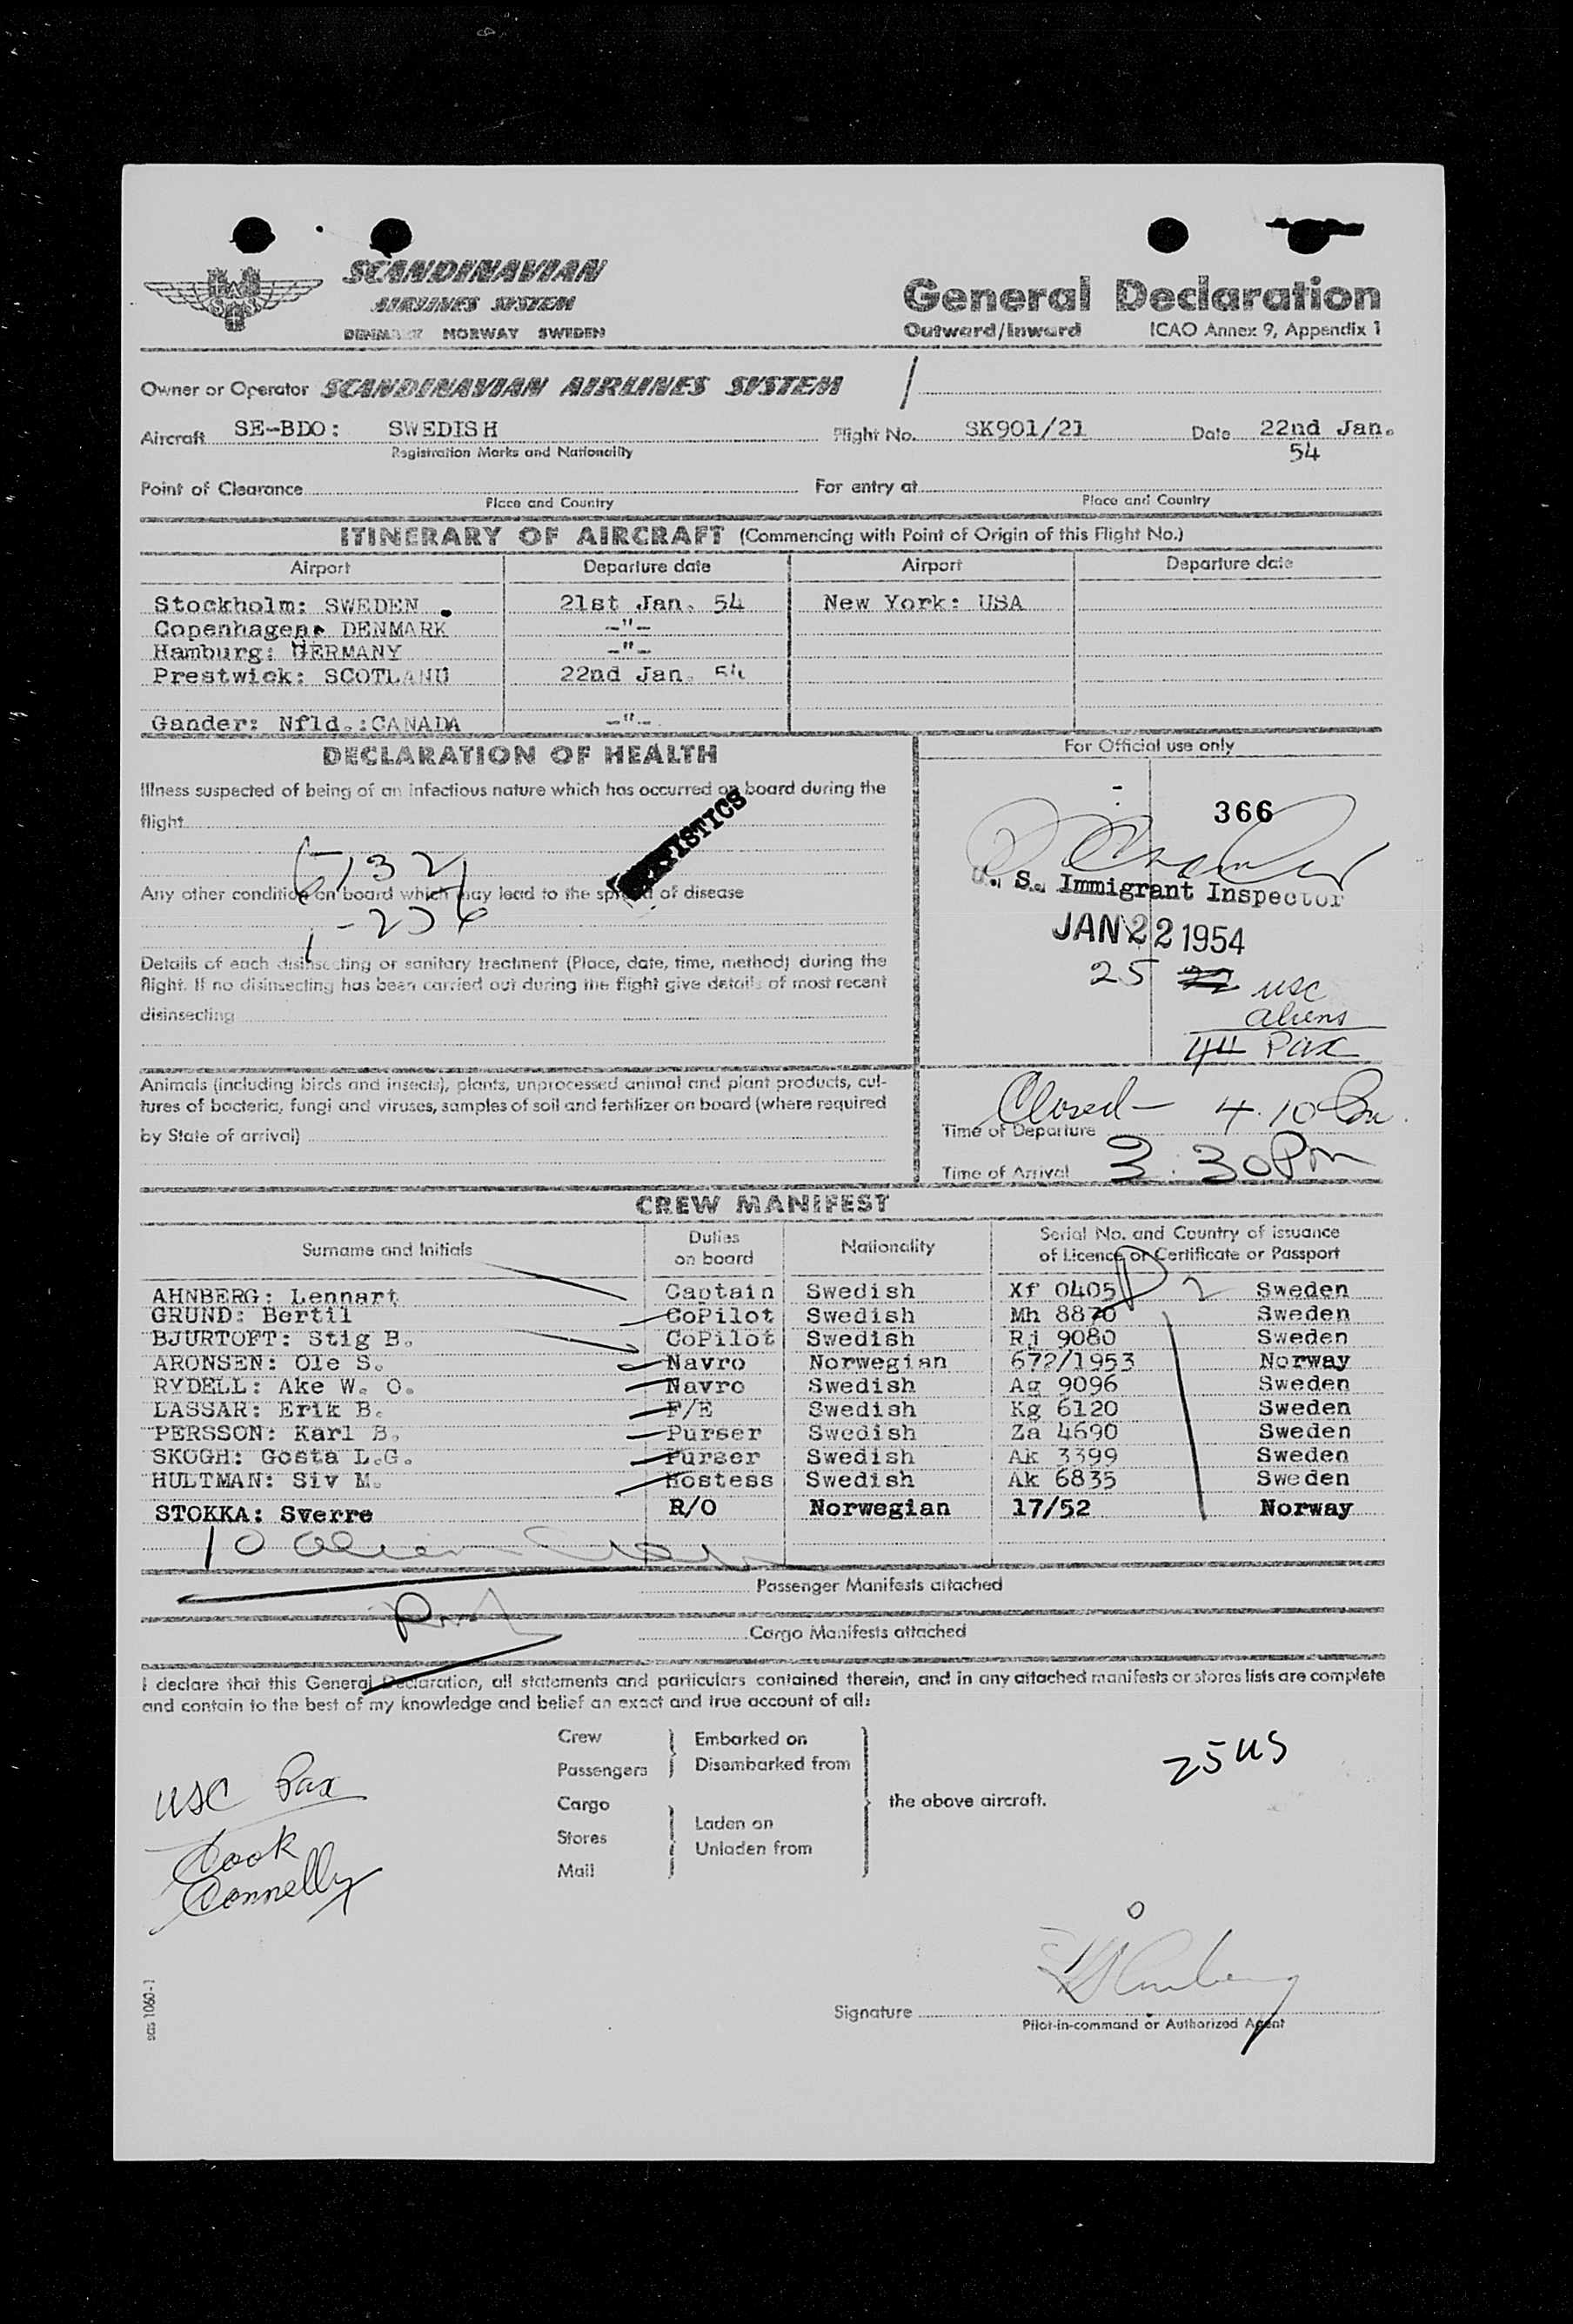 SCANDINAVIAN
AIRLINES SYSTEM
DENMARK NORWAY SWEDEN
General Declaration
Outward/Inward ICAO Annex 9, Appendix 1
Owner or Operator SCANDINAVIAN AIRLINES SYSTEM
Aircraft SE-BDO: SWEDISH Flight No. SK901/21 Date 22nd Jan.
54
Registration Marks and Nationality
Point of Clearance For entry at
Place and Country Place and Country
ITINERARY OF AIRCRAFT (Commencing with Point of Origin of this Flight No.)
Airport Departure date Airport Departure date
Stockholm: SWEDEN 21st Jan. 54 New York: USA
Copenhagen: DENMARK -"-
Hamburg: GERMANY -"-
Prestwick: SCOTLAND 22nd Jan. 54
Gander: Nfld.:CANADA -"-
DECLARATION OF HEALTH
Illness suspected of being of an infectious nature which has occurred on board during the
flight
STATISTICS
Any other condition on board which may lead to the spread of disease
Details of each disinsecting or sanitary treatment (Place, date, time, method) during the
flight. If no disinsecting has been carried out during the flight give details of most recent
disinsecting
Animals (including birds and insects), plants, unprocessed animal and plant products, cul-
tures of bacteria, fungi and viruses, samples of soil and fertilizer on board (where required
by State of arrival)
For Official use only
366
U. S. Immigrant Inspector
JAN 22 1954
25 usc
aliens
44 Pax
Closed - 4.10 Pm
Time of Departure
Time of Arrival 3:30 Pm
CREW MANIFEST
Surname and Initials Duties on board Nationality Serial No. and Country of issuance of Licence or Certificate or Passport
AHNBERG: Lennart Captain Swedish Xf 0405 Sweden
GRUND: Bertil CoPilot Swedish Mh 8870 Sweden
BJURTOFT: Stig B. CoPilot Swedish Rj 9080 Sweden
ARONSEN: Ole S. Navro Norwegian 672/1953 Norway
RYDELL: Ake W. O. Navro Swedish Ag 9096 Sweden
LASSAR: Erik B. F/E Swedish Kg 6120 Sweden
PERSSON: Karl B. Purser Swedish Za 4690 Sweden
SKOGH: Gosta L.G. Purser Swedish Ak 3399 Sweden
HULTMAN: Siv M. Hostess Swedish Ak 6835 Sweden
STOKKA: Sverre R/O Norwegian 17/52 Norway
10 alien
Passenger Manifests attached
Cargo Manifests attached
I declare that this General Declaration, all statements and particulars contained therein, and in any attached manifests or stores lists are complete
and contain to the best of my knowledge and belief an exact and true account of all:
Crew Embarked on
Passengers Disembarked from
Cargo the above aircraft.
Stores Laden on
Mail Unladen from
25 US
USC Pax
Cook
Connelly
Signature
Pilot-in-command or Authorized Agent
sas 1060-1